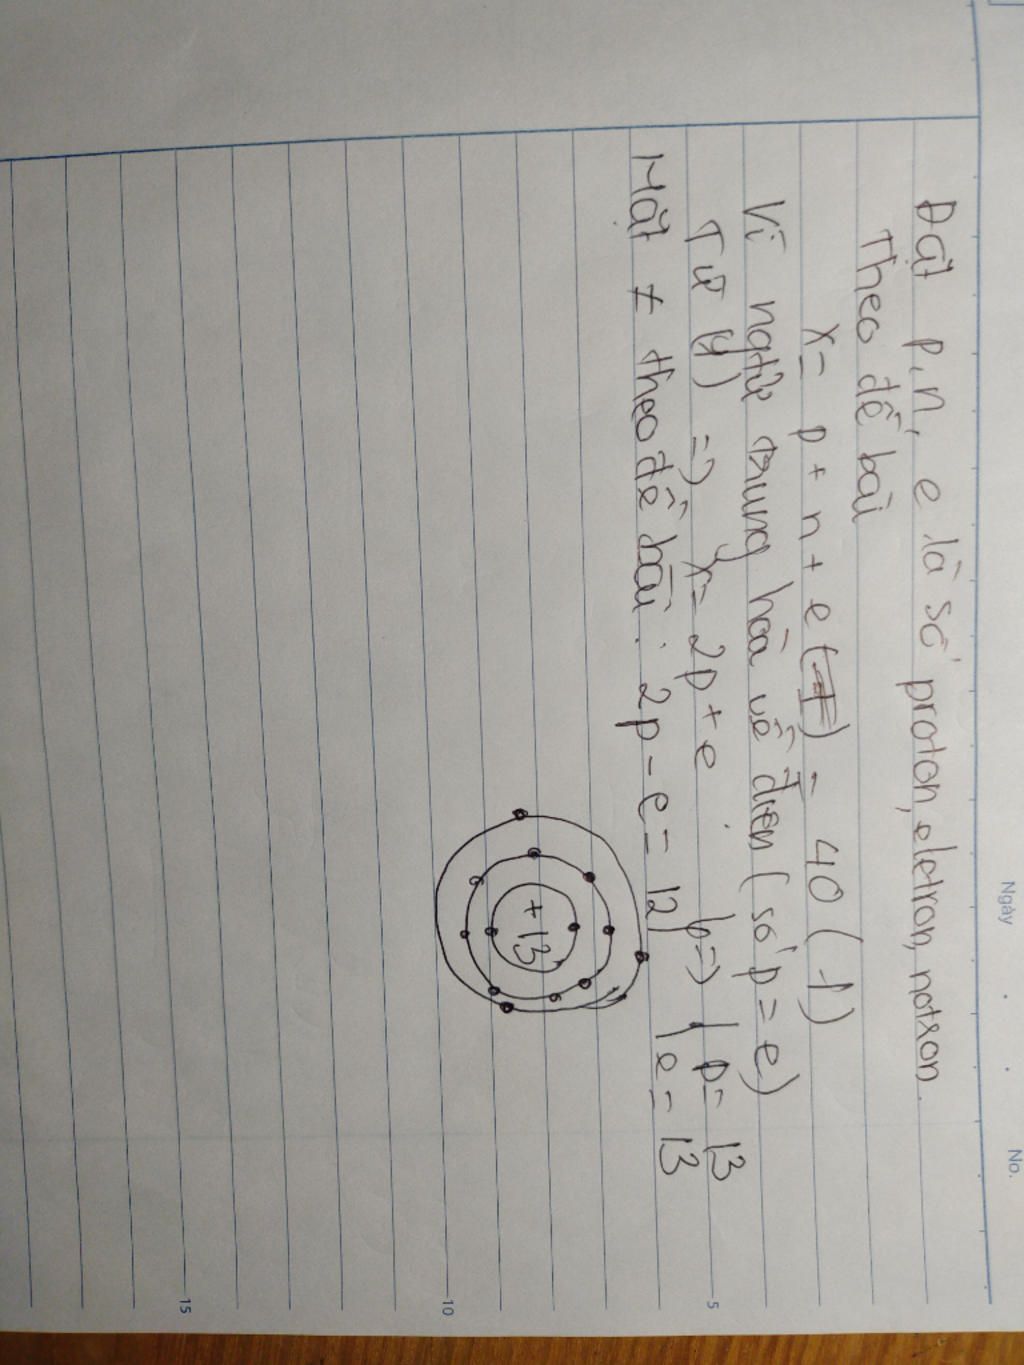 Ngày
No.
Đặt p, n, e là số proton, eletron, notron
Theo đề bài
x = p + n + e = 40 (1)
Vì ngtử trung hòa về điện (số p = e)
Từ (1) => x = 2p + e
=> p = 13
Mặt ≠ theo đề bài: 2p - e = 12
e = 13
+13
5
10
15